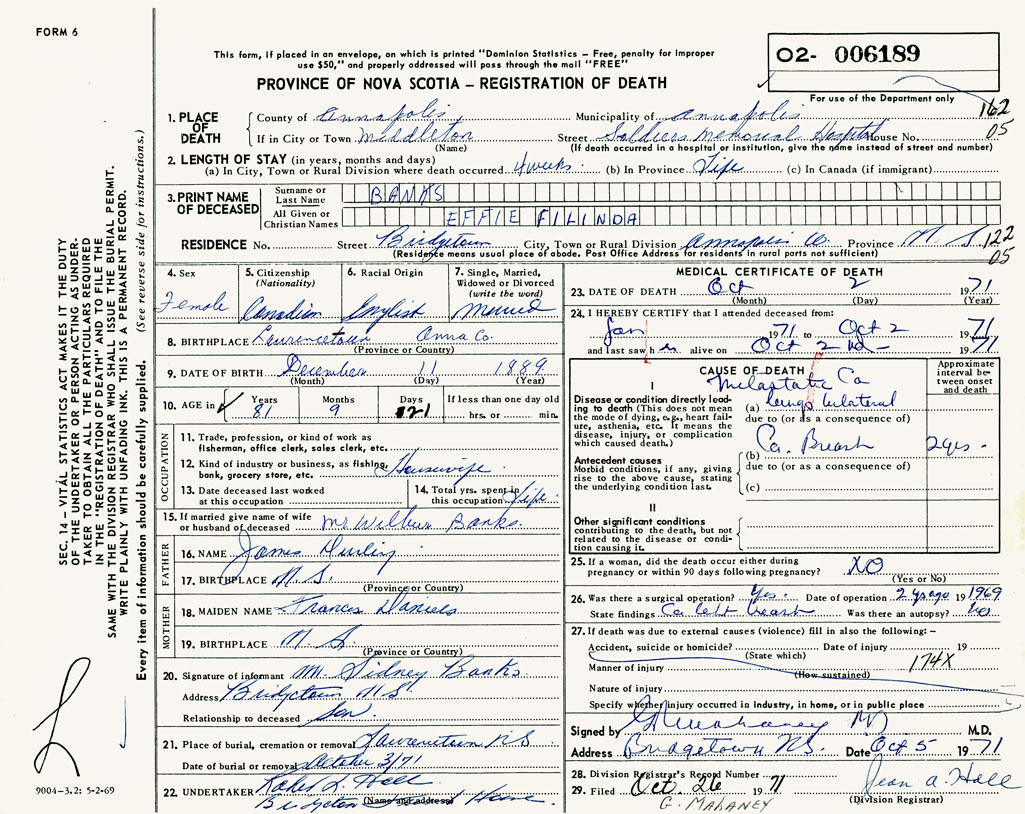 FORM 6
This form, if placed in an envelope, on which is printed "Dominion Statistics – Free, penalty for improper
use $50," and properly addressed will pass through the mail "FREE"
PROVINCE OF NOVA SCOTIA – REGISTRATION OF DEATH
02- 006189
For use of the Department only
162
05
1. PLACE OF DEATH
County of Annapolis, Municipality of Annapolis
If in City or Town Middleton Street Soldiers Memorial Hospital House No.
(Name) (If death occurred in a hospital or institution, give the name instead of street and number)
2. LENGTH OF STAY (in years, months and days)
(a) In City, Town or Rural Division where death occurred 4 weeks. (b) In Province Life (c) In Canada (if immigrant)
3. PRINT NAME OF DECEASED
Surname or Last Name BANKS
All Given or Christian Names EFFIE FILINDA
RESIDENCE No. Street Bridgetown City, Town or Rural Division Annapolis Co. Province N. S. 122
(Residence means usual place of abode. Post Office Address for residents in rural parts not sufficient) 05
4. Sex 5. Citizenship 6. Racial Origin 7. Single, Married,
(Nationality) Widowed or Divorced
(write the word)
Female Canadian English Married
8. BIRTHPLACE Lawrencetown Anna Co.
(Province or Country)
9. DATE OF BIRTH December 11 1889
(Month) (Day) (Year)
10. AGE in Years Months Days If less than one day old
81 9 21 hrs. or min.
OCCUPATION
11. Trade, profession, or kind of work as
fisherman, office clerk, sales clerk, etc.
12. Kind of industry or business, as fishing, Housewife
bank, grocery store, etc.
13. Date deceased last worked
at this occupation
14. Total yrs. spent in
this occupation Life
15. If married give name of wife
or husband of deceased Mr Wilbur Banks.
FATHER
16. NAME James Durling
17. BIRTHPLACE N. S.
(Province or Country)
MOTHER
18. MAIDEN NAME Frances Daniels
19. BIRTHPLACE N. S.
(Province or Country)
20. Signature of informant Mr. Sidney Banks
Address Bridgetown N.S.
Relationship to deceased Son.
21. Place of burial, cremation or removal Lawrencetown N.S.
Date of burial or removal October 3/71
22. UNDERTAKER Hall
(Name and address)
MEDICAL CERTIFICATE OF DEATH
23. DATE OF DEATH Oct 2 1971
(Month) (Day) (Year)
24. I HEREBY CERTIFY that I attended deceased from:
Jan 1971 to Oct 2 1971
and last saw her alive on Oct 2nd 1971
CAUSE OF DEATH
Approximate interval between onset and death
I
Disease or condition directly leading
to death (This does not mean
the mode of dying, e.g., heart failure,
asthenia, etc. It means the
disease, injury, or complication
which caused death.)
Metastatic Ca
(a) lungs bilateral
due to (or as a consequence of)
Antecedent causes
Morbid conditions, if any, giving
rise to the above cause, stating
the underlying condition last.
(b) Ca. Breast 2 yrs.
due to (or as a consequence of)
(c)
II
Other significant conditions
contributing to the death, but not
related to the disease or condition
causing it.
25. If a woman, did the death occur either during
pregnancy or within 90 days following pregnancy? NO
(Yes or No)
26. Was there a surgical operation? Yes. Date of operation 2 yrs ago 19 1969
State findings Ca left breast Was there an autopsy? No
27. If death was due to external causes (violence) fill in also the following: –
Accident, suicide or homicide? Date of injury 19
(State which)
174X
Manner of injury
(How sustained)
Nature of injury
Specify whether injury occurred in industry, in home, or in public place
Signed by G Mahaney MD M.D.
Address Bridgetown N.S. Date Oct 5 1971
28. Division Registrar's Record Number
29. Filed Oct. 26 1971 Jean A. Hall
(Division Registrar)
G. MAHANEY
SEC. 14 – VITAL STATISTICS ACT MAKES IT THE DUTY
OF THE UNDERTAKER OR PERSON ACTING AS UNDERTAKER
TO OBTAIN ALL THE PARTICULARS REQUIRED
IN THE "REGISTRATION OF DEATH" AND TO FILE THE
SAME WITH THE DIVISION REGISTRAR WHO SHALL ISSUE THE BURIAL PERMIT.
WRITE PLAINLY WITH UNFADING INK. THIS IS A PERMANENT RECORD.
Every item of information should be carefully supplied. (See reverse side for instructions.)
9004–3.2: 5-2-69